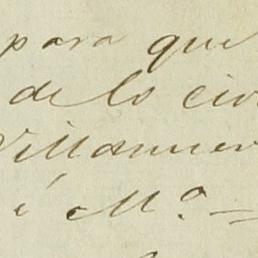 para que
de lo civ
Villanuev
é Mª